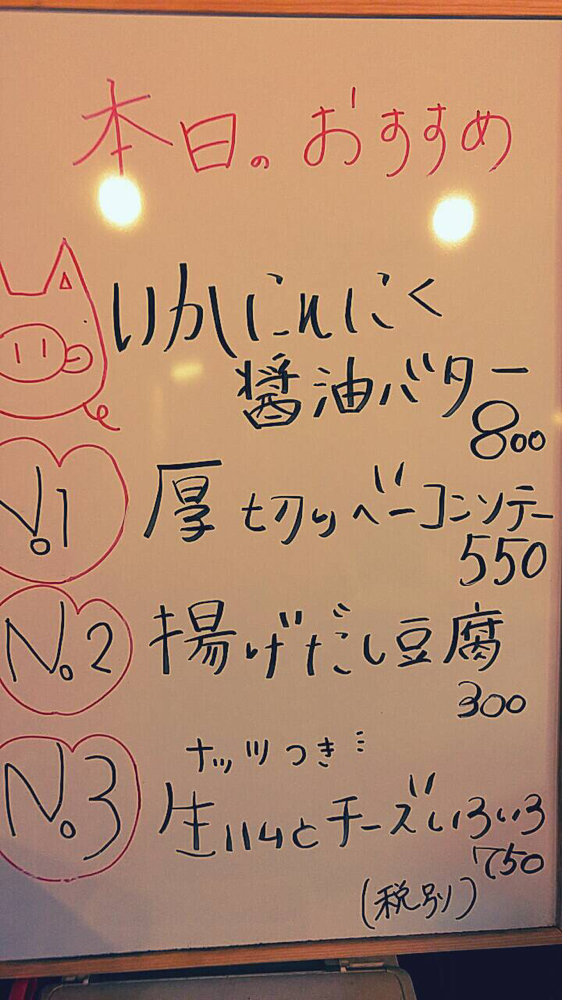 本日のおすすめ
いかにんにく
醤油バター
800
No.1 厚切りベーコンソテー
550
No.2 揚げだし豆腐
300
ナッツつき…
No.3 生ハムとチーズいろいろ
750
(税別)